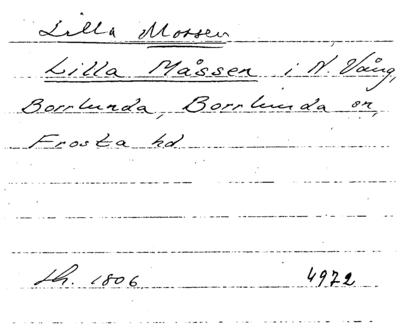 Lilla Mossen
Lilla Måssen i N. Vång,
Borrlunda, Borrlunda sn,
Frosta hd
sh. 1806 4972